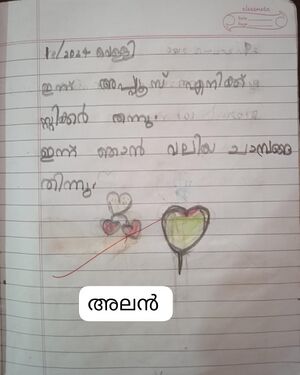 classmate
Date
Page
1/2024 വെള്ളി
ഇന്ന് അഫ്ലൂസ് എനിക്ക്
സ്റ്റിക്കർ തന്നു.
ഇന്ന് ഞാൻ വലിയ ചാമ്പങ്ങ
തിന്നു.
അലൻ